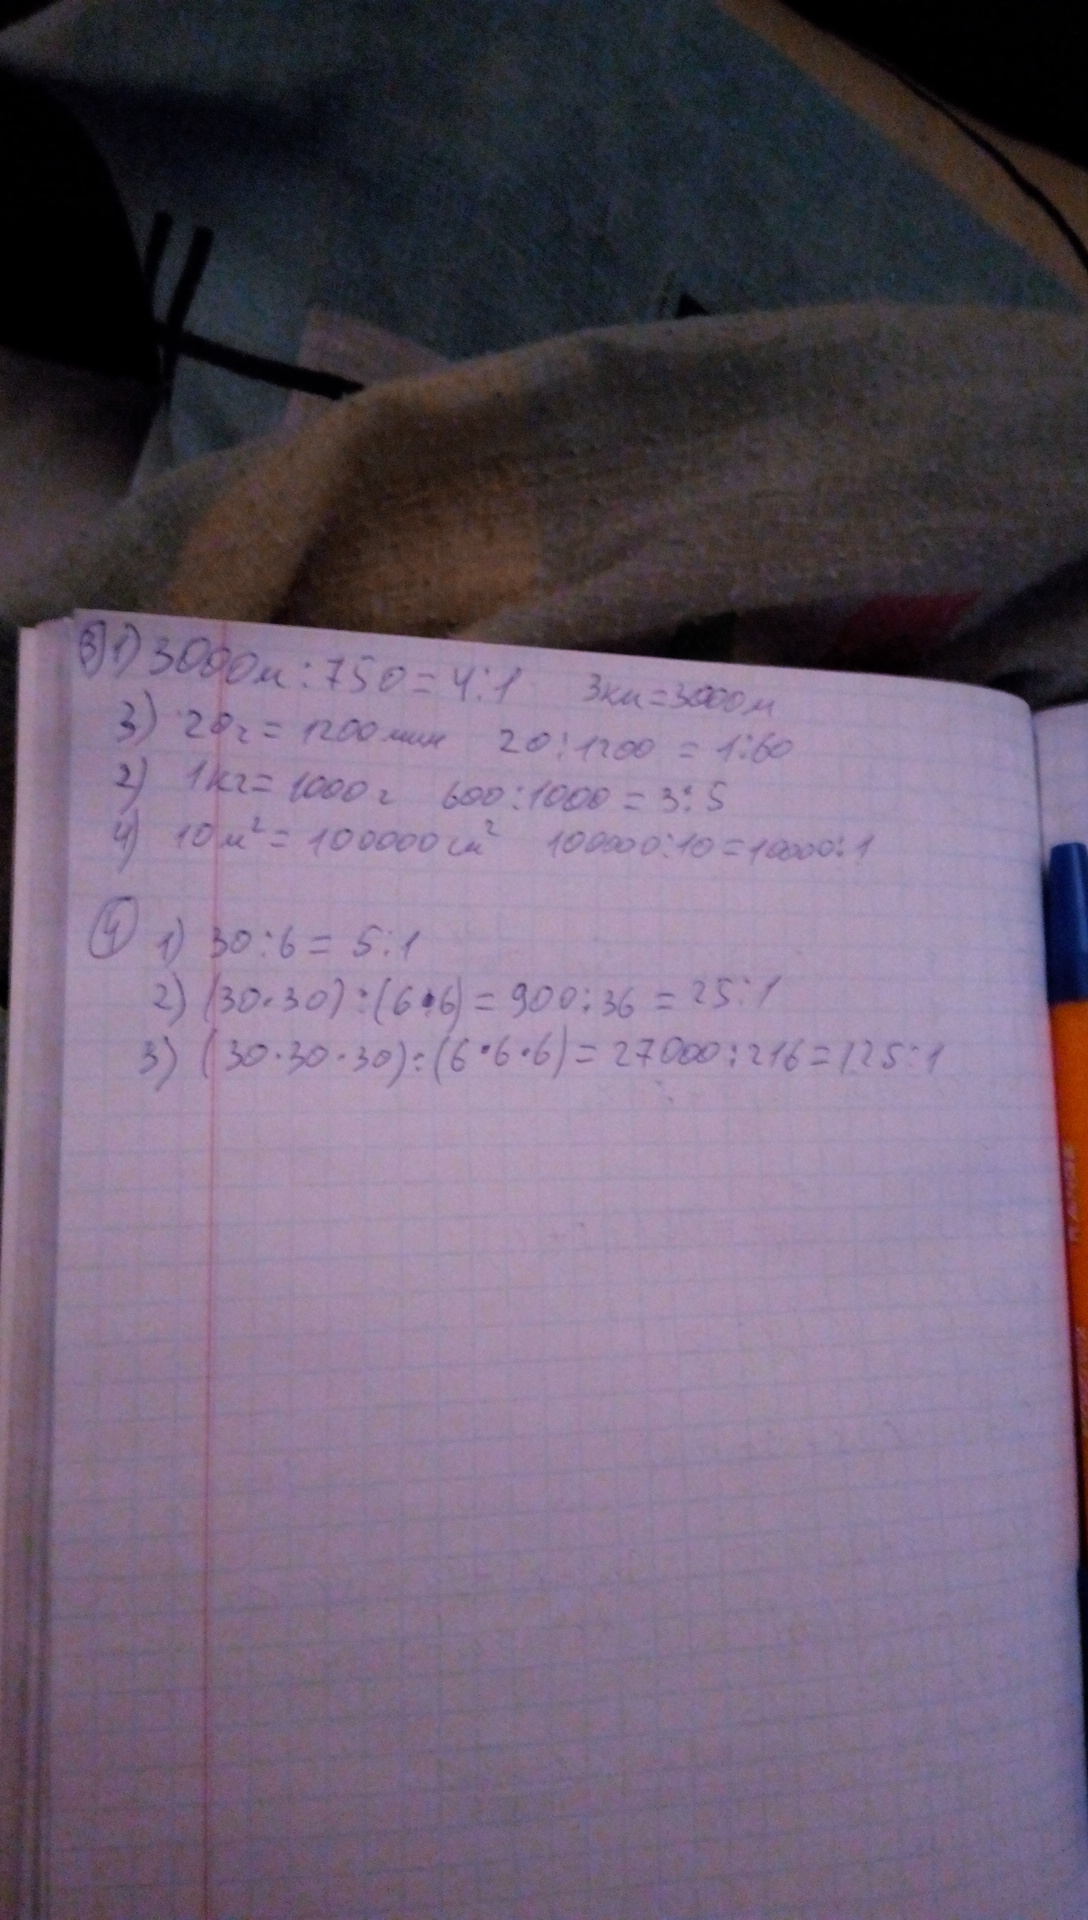 3) 1) 3000м : 750 = 4 : 1 3км = 3000м
3) 20ч = 1200 мин 20 : 1200 = 1 : 60
2) 1кг = 1000г 600 : 1000 = 3 : 5
4) 10м² = 100000см² 100000 : 10 = 10000 : 1
4 1) 30 : 6 = 5 : 1
2) (30·30) : (6·6) = 900 : 36 = 25 : 1
3) (30·30·30) : (6·6·6) = 27000 : 216 = 125 : 1